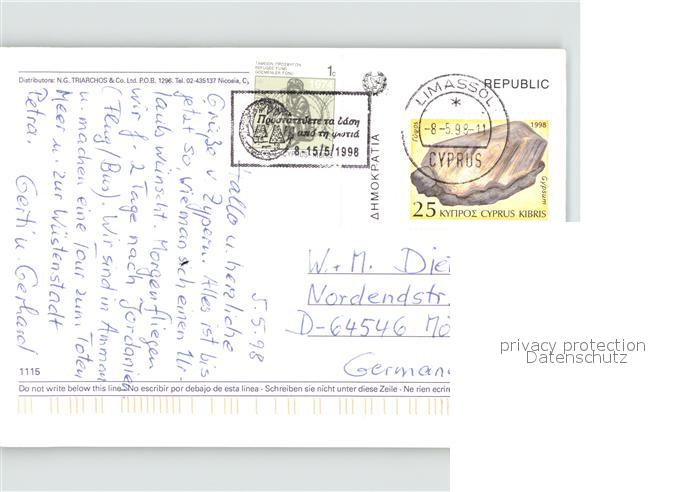 Distributors: N.G. TRIARCHOS & Co. Ltd. P.O.B. 1296. Tel. 02-435137 Nicosia, C
ΤΑΜΕΙΟΝ ΠΡΟΣΦΥΓΩΝ
REFUGEE FUND
GÖÇMENLER FONU
1c
Προστατεύετε τα δάση
από τη φωτιά
8-15/5/1998
ΔΗΜΟΚΡΑΤΙΑ
REPUBLIC
LIMASSOL
*
-8-5.98-11
CYPRUS
Γύψος
1998
Gypsum
25 ΚΥΠΡΟΣ CYPRUS KIBRIS
5.5.98
Hallo u. herzliche
Grüße v. Zypern. Alles ist bis
jetzt so wie man sich einen Ur-
laub wünscht. Morgen fliegen
wir f. 2 Tage nach Jordanien
(Flug/Bus). Wir sind in Amman
u. machen eine Tour zum Toten
Meer u. zur Wüstenstadt
Petra. Gerti u. Gerhard
W. + M. Die
Nordendstr.
D-64546 Mö
German
1115
Do not write below this line - No escribir por debajo de esta linea - Schreiben sie nicht unter diese Zeile - Ne rien ecrire
privacy protection
Datenschutz